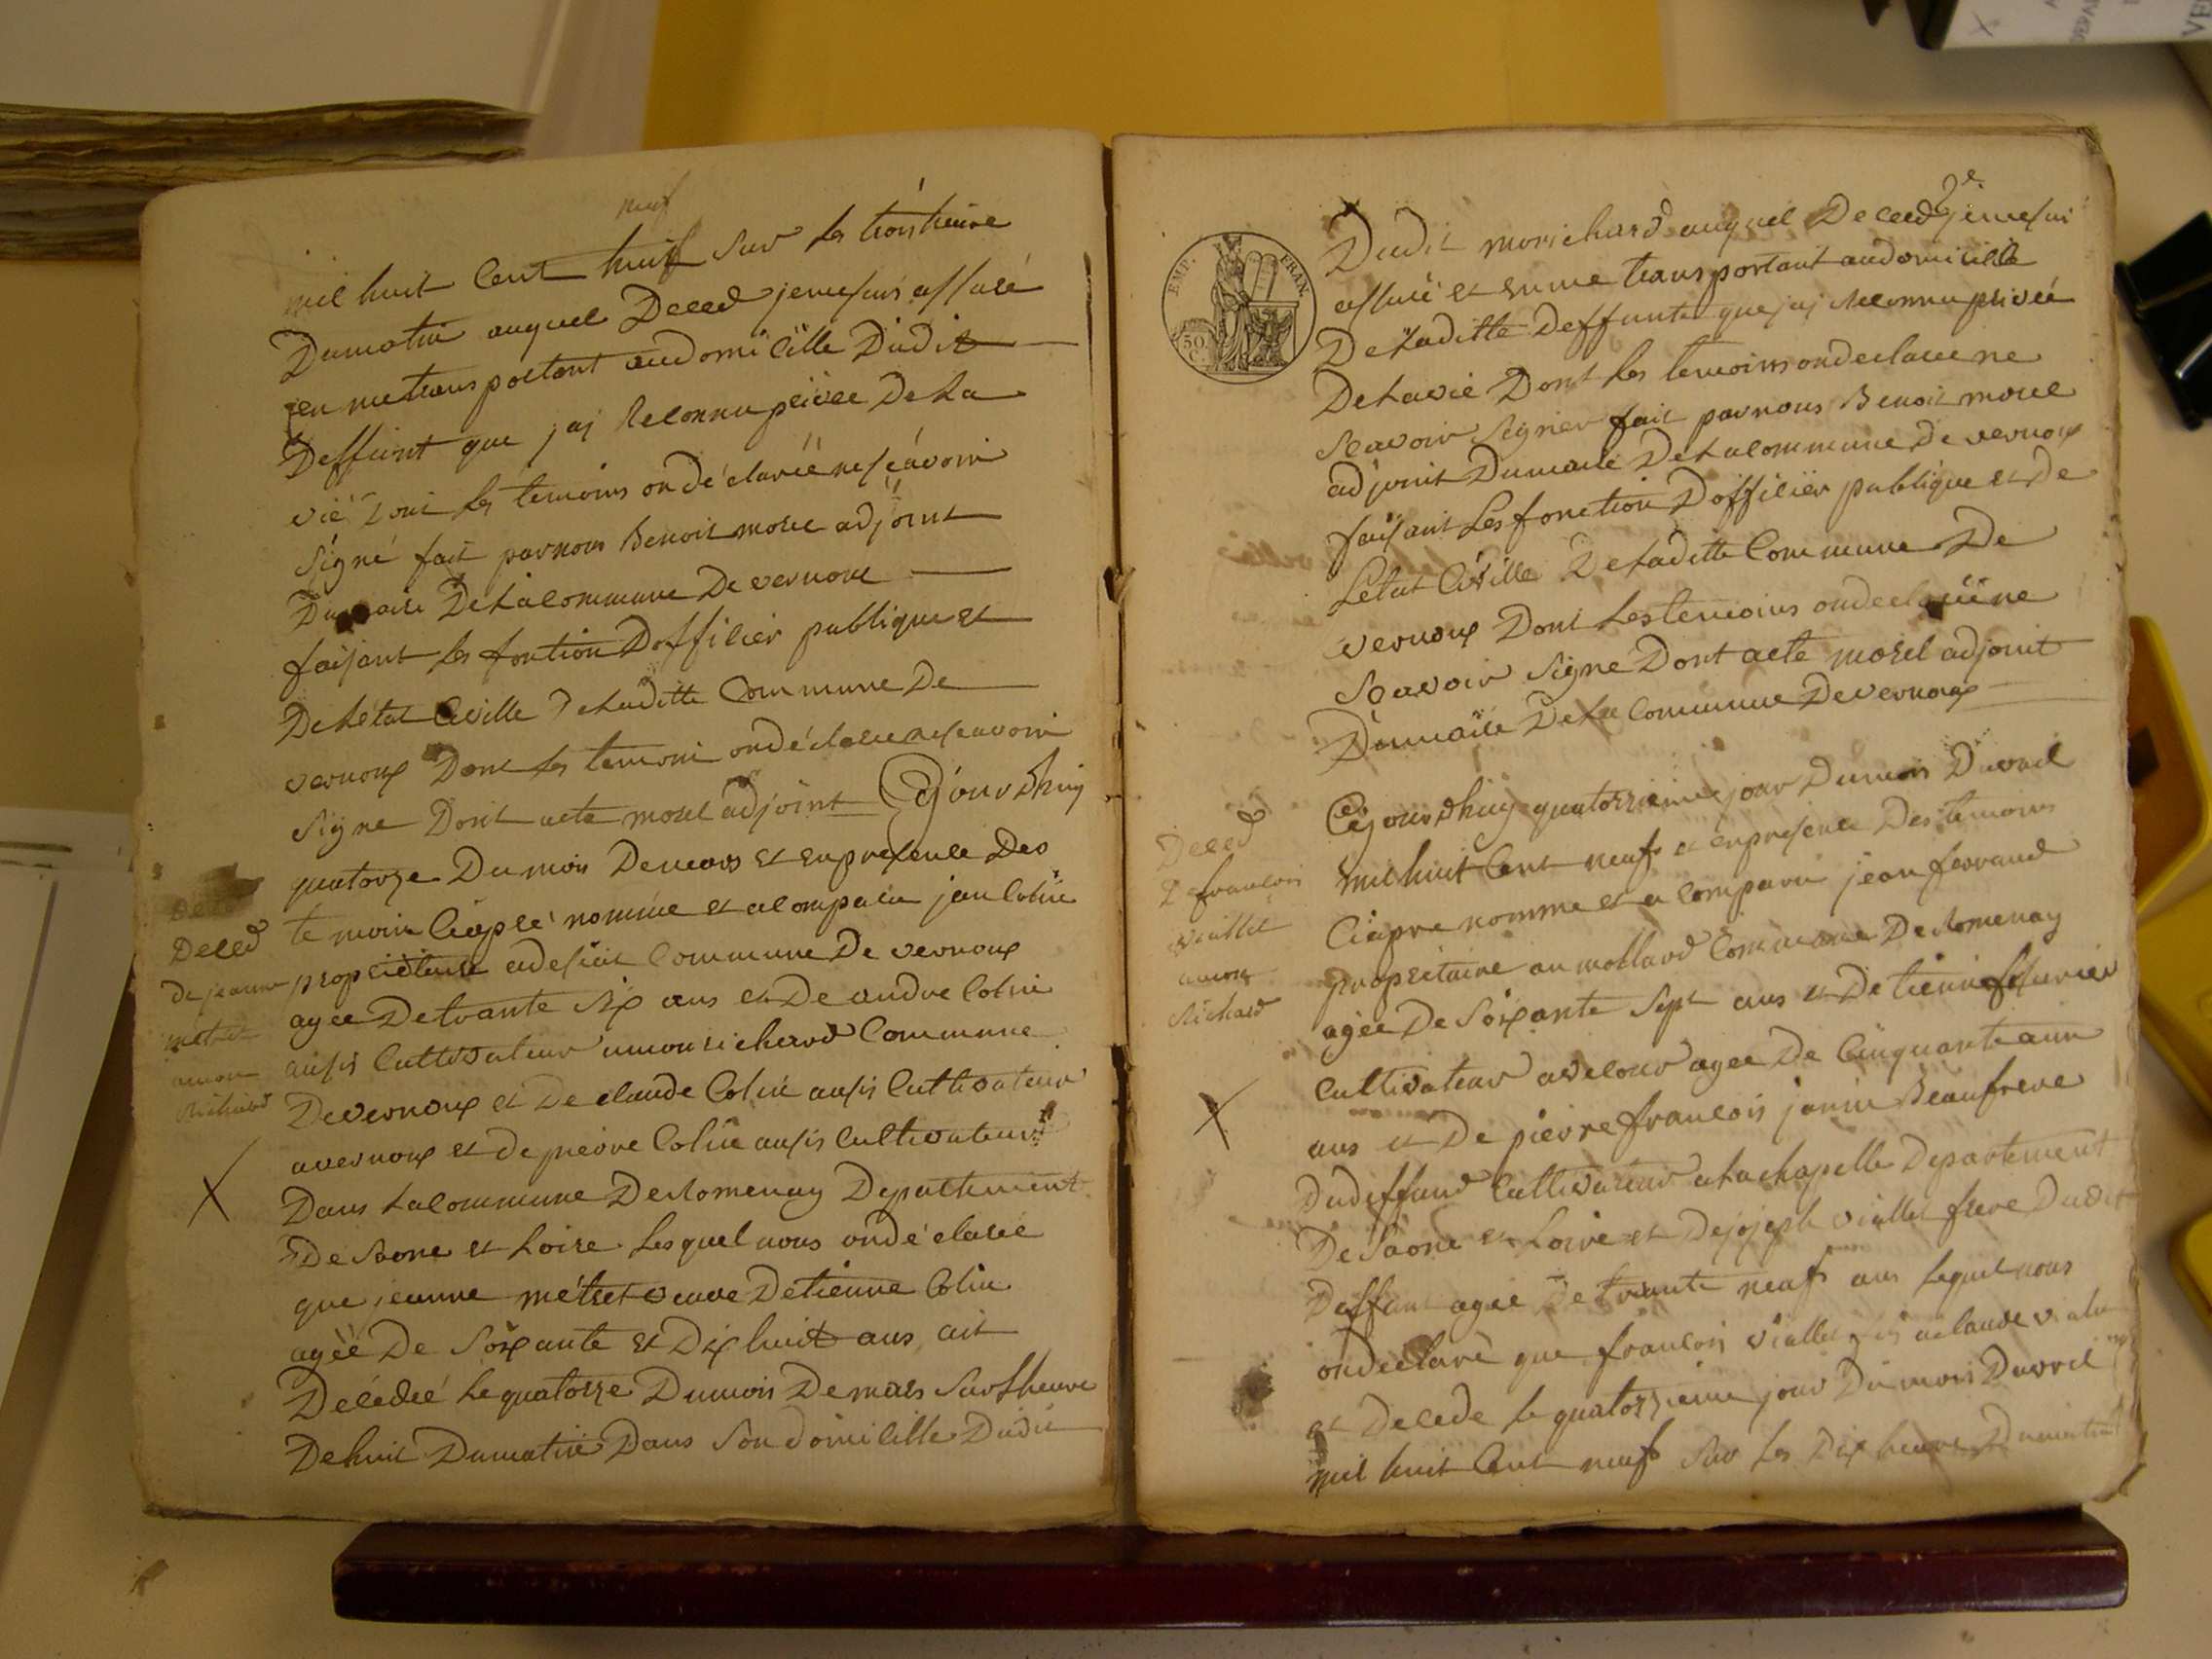 neuf
mil huit Cent huit Sur les trois heure
Dumatin auquel Deced jemesuis assuré
en metransportant audomicille Dudit
Deffunt que jaj Reconnu privée De La
vie Dont les temoins ondéclarée nesçavoir
Signé fait parnous Benoit morel adjoint
Dumaire DeLacommune De vernoux
faisant les fontion Dofficier publique et
DeLétat Civille DeLaditte Commune De
vernoux Dont les temoin ondéclaree nesçavoir
Signe Dont acte morel adjoint Cejourdhuy
quatorze Dumois Demars et enpresence Des
temoin Ciaprè nommée et acomparu jan Colin
propriètaire Commune De vernoux
agee Detrante Six ans et De andre Colin
ausis Cultivateur amon richard Commune
Devernoux et De claude Colin ausis Cultivateur
avernoux et De pierre Colin ausis Cultivateur
Dans Lacommune DeRomenay Departement
De Saone et Loire Lesquel nous ondéclarée
que jeanne métret veuve Detienne Colin
agée De Soixante et Dix huit ans ait
Décédée Le quatorze Dumois De mars Surlheure
Dehuit Dumatin Dans Son domicille Dudit
Deced
De jeanne
métret
amon
Richard
X
2e
EMP. FRAN.
50 C.
Dudit monrichard auquel Deced jemesui
assuré et enme transportant audomicille
DeLaditte Deffunte que jaj Reconnu privée
DeLavie Dont les temoins ondeclaree ne
Scavoir Signer fait parnous Benoit morel
adjoint Dumaire DeLacommune De vernoux
faisant Les fonction Dofficier publique et De
Letat Civille DeLaditte Commune De
vernoux Dont Lestemoins ondeclarée ne
Scavoir Signe Dont acte morel adjoint
Dumaire DeLa Commune Devernoux
Cejourdhuy quatorzieme jour Dumois Davril
mil huit Cent neuf et enpresence Des temoins
Ciapre nomme et a comparu jean ferrand
propriétaire au mollard Commune DeRomenay
agée De Soixante Sept ans et Detienne
Cultivateur agee De Cinquante
ans et De pierre francois janin Beaufrere
Dudeffund Cultivateur aLachapelle Departement
De Saone et Loire et Dejoseph viallet frere Dudit
Deffunt agée Detrante neuf ans Lequel nous
ondeclaré que francois viallet
et Decede le quatorzieme jour Du mois Davril
mil huit Cent neuf Sur les Dix heures Dumatin
Deced
De francois
viallet
amon
Richard
X